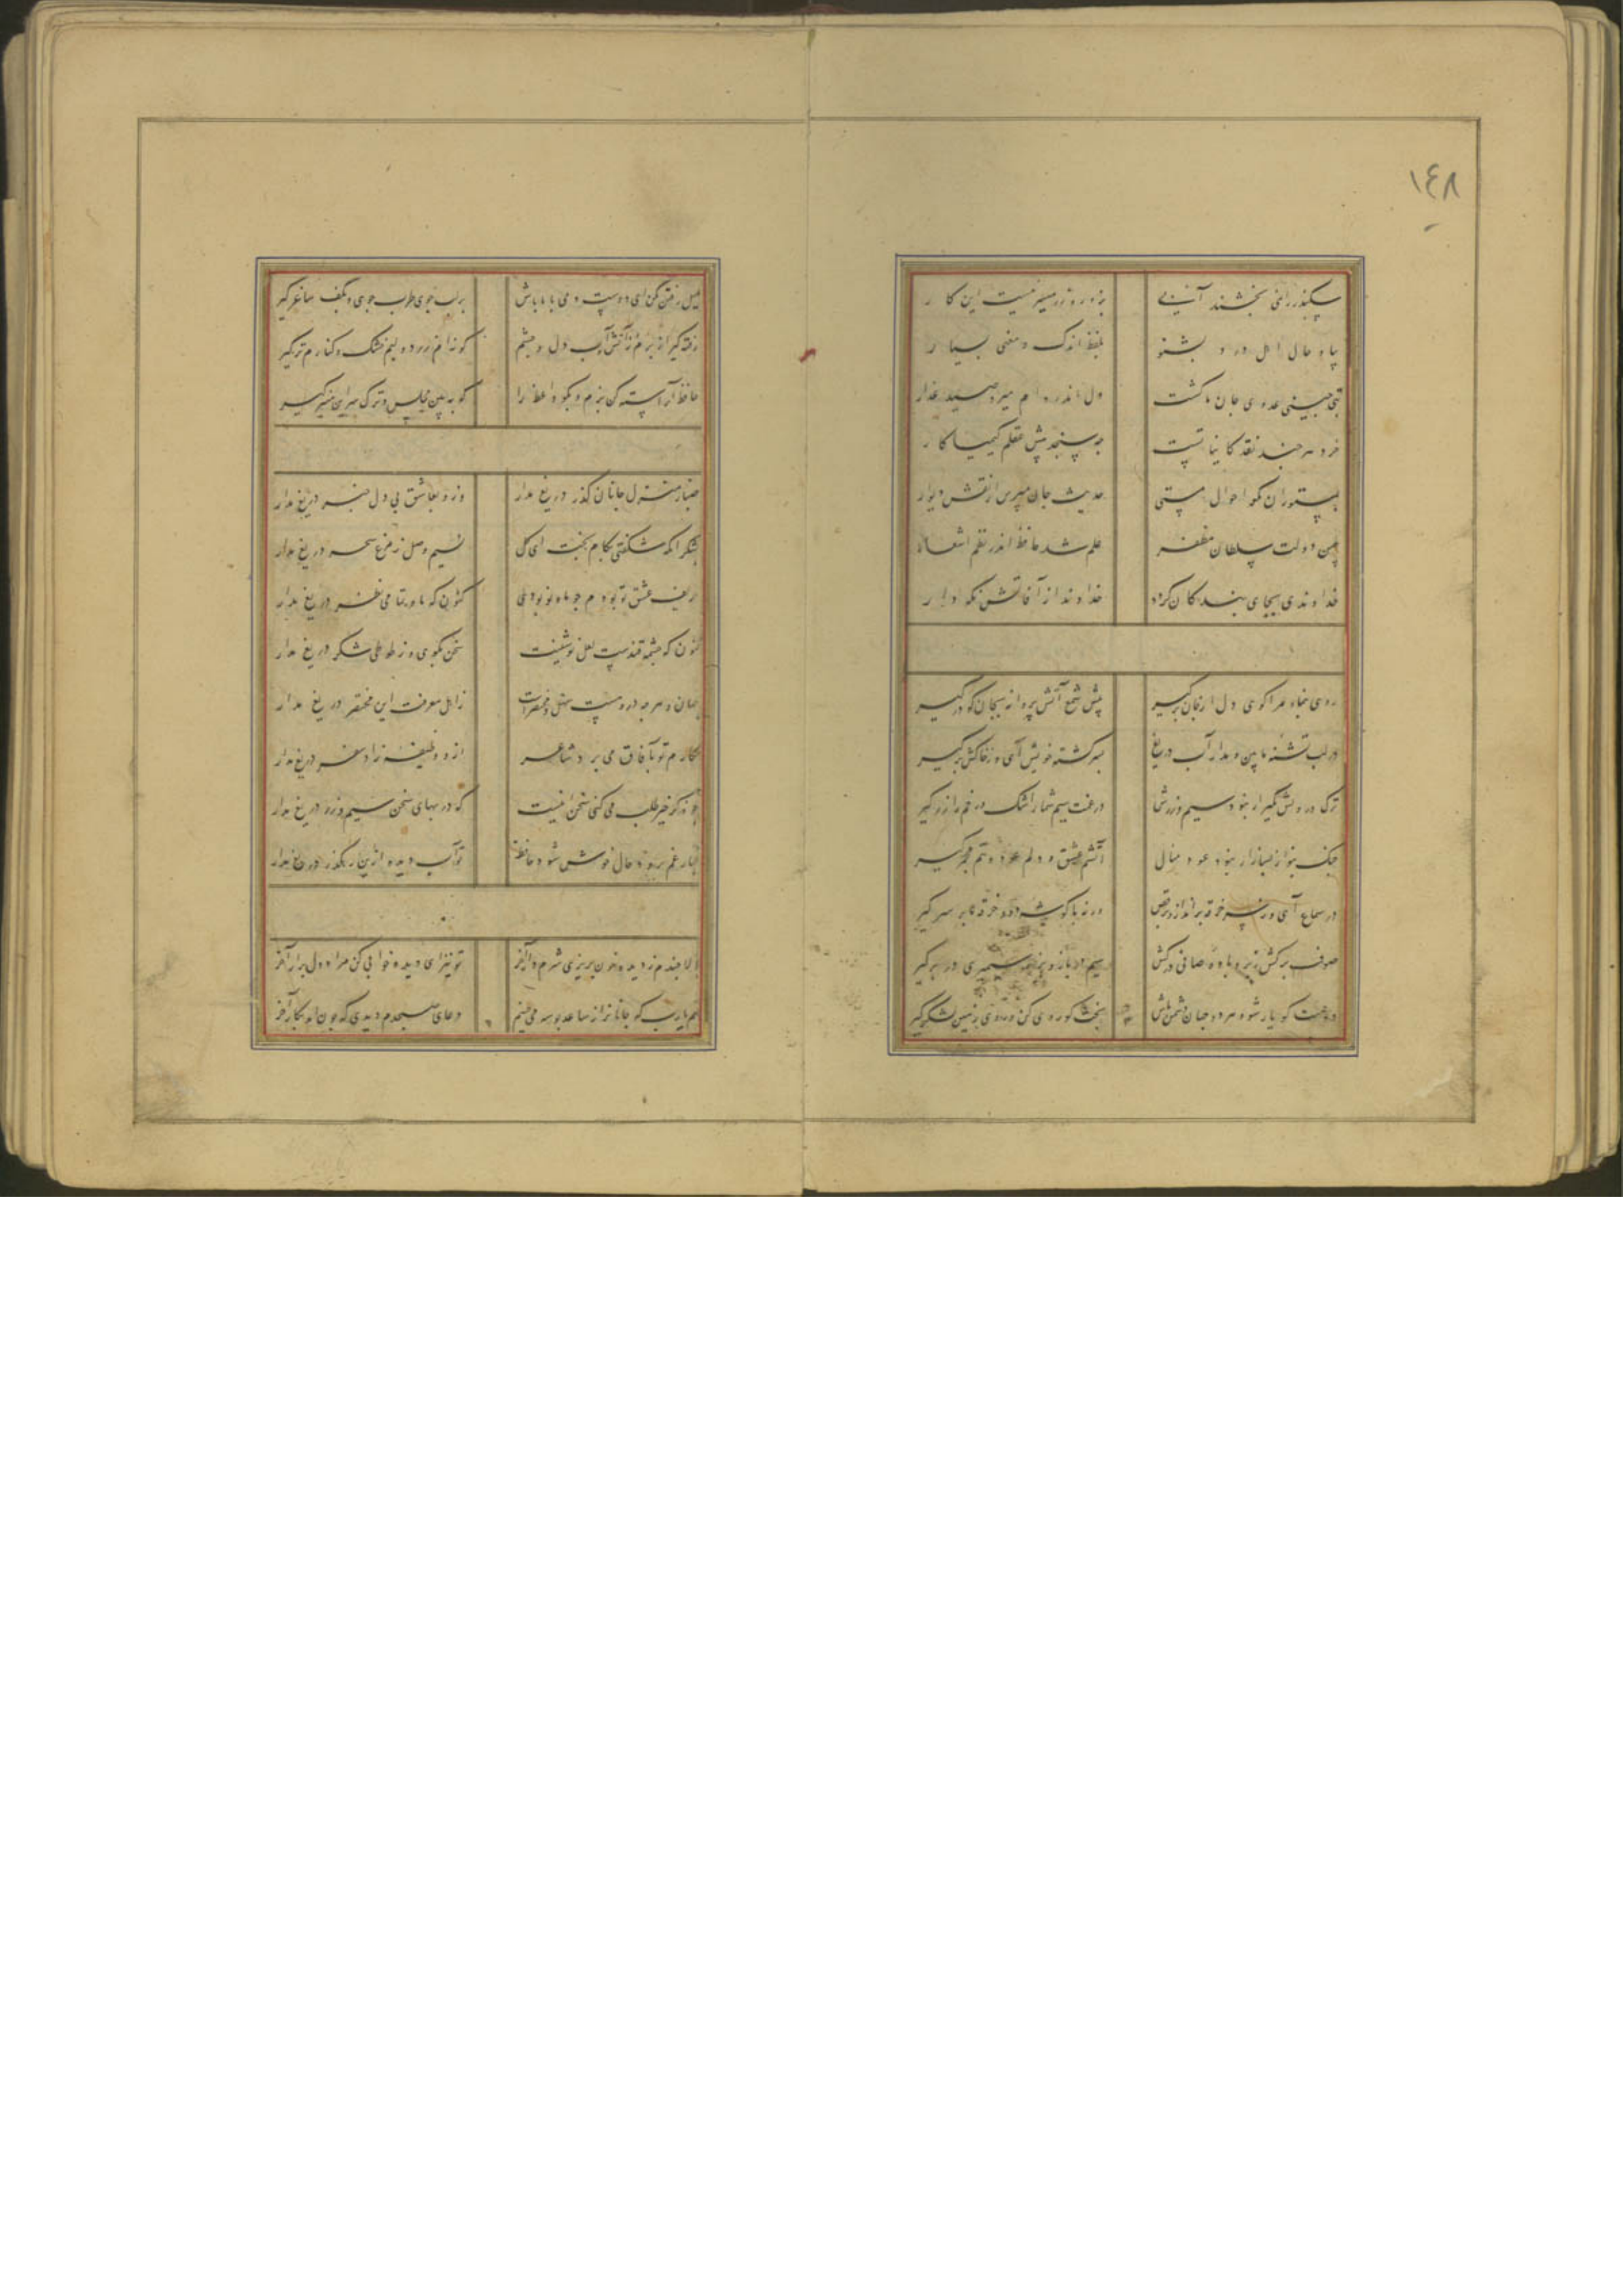 ١٤٨
سکندر را نمی بخشند آبی
بزور و زر میسر نیست این کار
بیا و حال اهل درد بشنو
بلفظ اندک و معنی بسیار
بت چینی عدوی جان ما گشت
خرد هر چند نقد کایناتست
چه سنجد پیش عقلم کیمیا کار
بمستوران مگو احوال مستی
حدیث جان مپرس از نقش دیوار
بیمن دولت سلطان مظفر
علم شد حافظ اندر نظم اشعار
خداوندی بجای بندکان کرد
خداوندا از آفاتش نگه دار
روی بنما و مرا گوی دل از جان برگیر
پیش شمع آتش پروانه بجان گو درگیر
در لب تشنه ما بین و مدار آب دریغ
بر سر کشته خویش آی و ز خاکش برگیر
ترک درویش مگیر ار نبود سیم و زرش
در غمت سیم شمار اشک و رخم را زر گیر
چنگ بنواز و بساز ار نبود عود منال
آتشم عشق و دلم عود و تنم مجمر گیر
در سماع آی و ز سر خرقه برانداز و برقص
ورنه با گوشه رو و خرقه ما بر سر گیر
صوف برکش ز سر و باده صافی درکش
سیم در باز و بزر سیمبری در بر گیر
دوست گو یار شو و هر دو جهان دشمن باش
بخت گو روی کن و روی زمین لشکر گیر
میل رفتن مکن ای دوست دمی با ما باش
بر لب جوی طرب جوی و بکف ساغر گیر
رفته گیر از برم و ز آتش و آب دل و چشم
گونه ام زرد و لبم خشک و کنارم تر گیر
حافظ آراسته کن بزم و بگو واعظ را
که ببین مجلس و ترک سر منبر گیر
صبا ز منزل جانان گذر دریغ مدار
وزو بعاشق بی دل خبر دریغ مدار
بشکر آنکه شکفتی بکام بخت ای گل
نسیم وصل ز مرغ سحر دریغ مدار
حریف عشق تو بودم چو ماه نو بودی
کنون که ماه تمامی نظر دریغ مدار
کنون که چشمه قندست لعل نوشینت
سخن بگوی و ز طوطی شکر دریغ مدار
جهان و هر چه دروست سهل و مختصرست
ز اهل معرفت این مختصر دریغ مدار
مکارم تو بآفاق می برد شاعر
ازو وظیفه زاد سفر دریغ مدار
چو ذکر خیر طلب می کنی سخن اینست
که در بهای سخن سیم و زر دریغ مدار
غبار غم برود حال خوش شود حافظ
تو آب دیده ازین رهگذر دریغ مدار